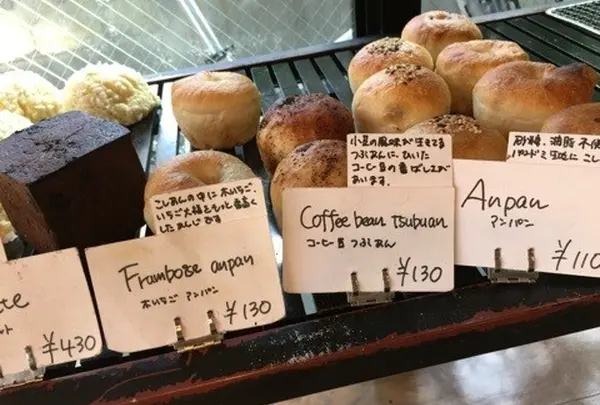 tte
ット
¥430
こしあんの中に木いちご、
いちご大福をもっと
したあんじです
Framboise anpan
木いちご アンパン
¥130
小豆の風味が生きてる
つぶあんに、ひいた
コーヒー豆の香ばしさが
あいます。
Coffee bean Tsubuan
コーヒー豆 つぶしあん
¥130
砂糖、油脂不使
生地にこし
Anpan
アンパン
¥110